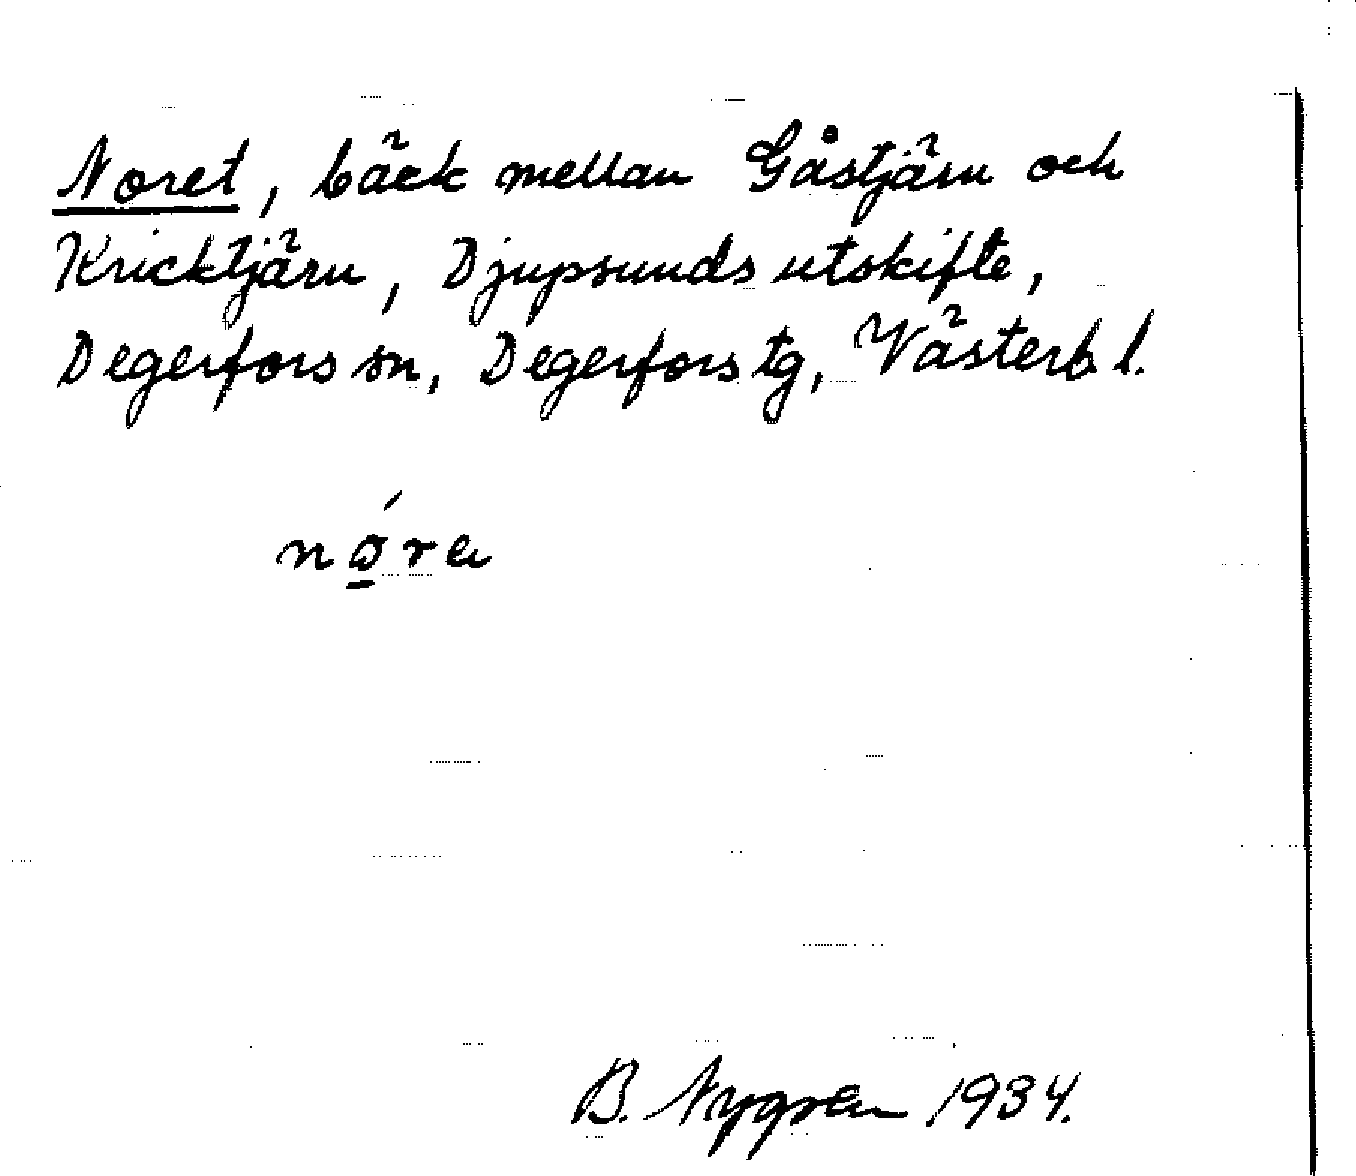 Noret, bäck mellan Gåstjärn och
Kricktjärn, Djupsunds utskifte,
Degerfors sn, Degerfors tg, Västerb l.
nǿ̱ra
B. Nygren 1934.